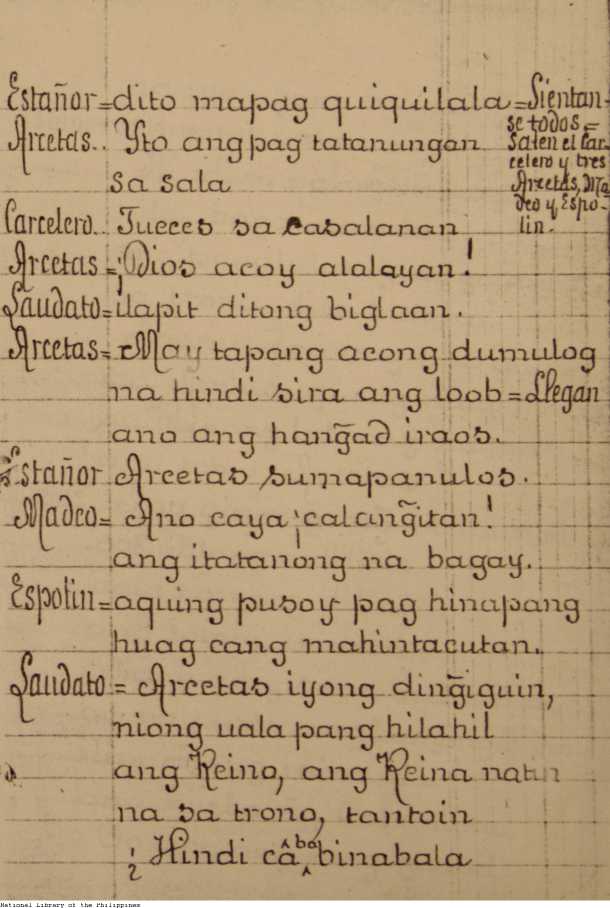 Estañor=dito mapag quiquilala=Sientan-
se todos=
Arcetas.. Yto ang pag tatanungan
Salen el Car-
celero y tres
sa sala
Arcetas, Ma
deo y Espo-
lin.
Carcelero.. Jueces sa casalanan
Arcetas=¡Dios acoy alalayan!
Laudato=ilapit ditong biglaan.
Arcetas=May tapang acong dumulog
na hindi sira ang loob=Llegan
ano ang hang̃ad iraos.
Estañor Arcetas sumapanulos.
Madeo= Ano caya ¡calcang̃itan!
ang itatanong na bagay.
Espolin=aquing pusoy pag hinapang
huag cang mahintacutan.
Laudato= Arcetas iyong ding̃iguin,
niong uala pang hilahil
ang Reino, ang Reina natin
na sa trono, tantoin
¿Hindi câ ba binabala
National Library of the Philippines